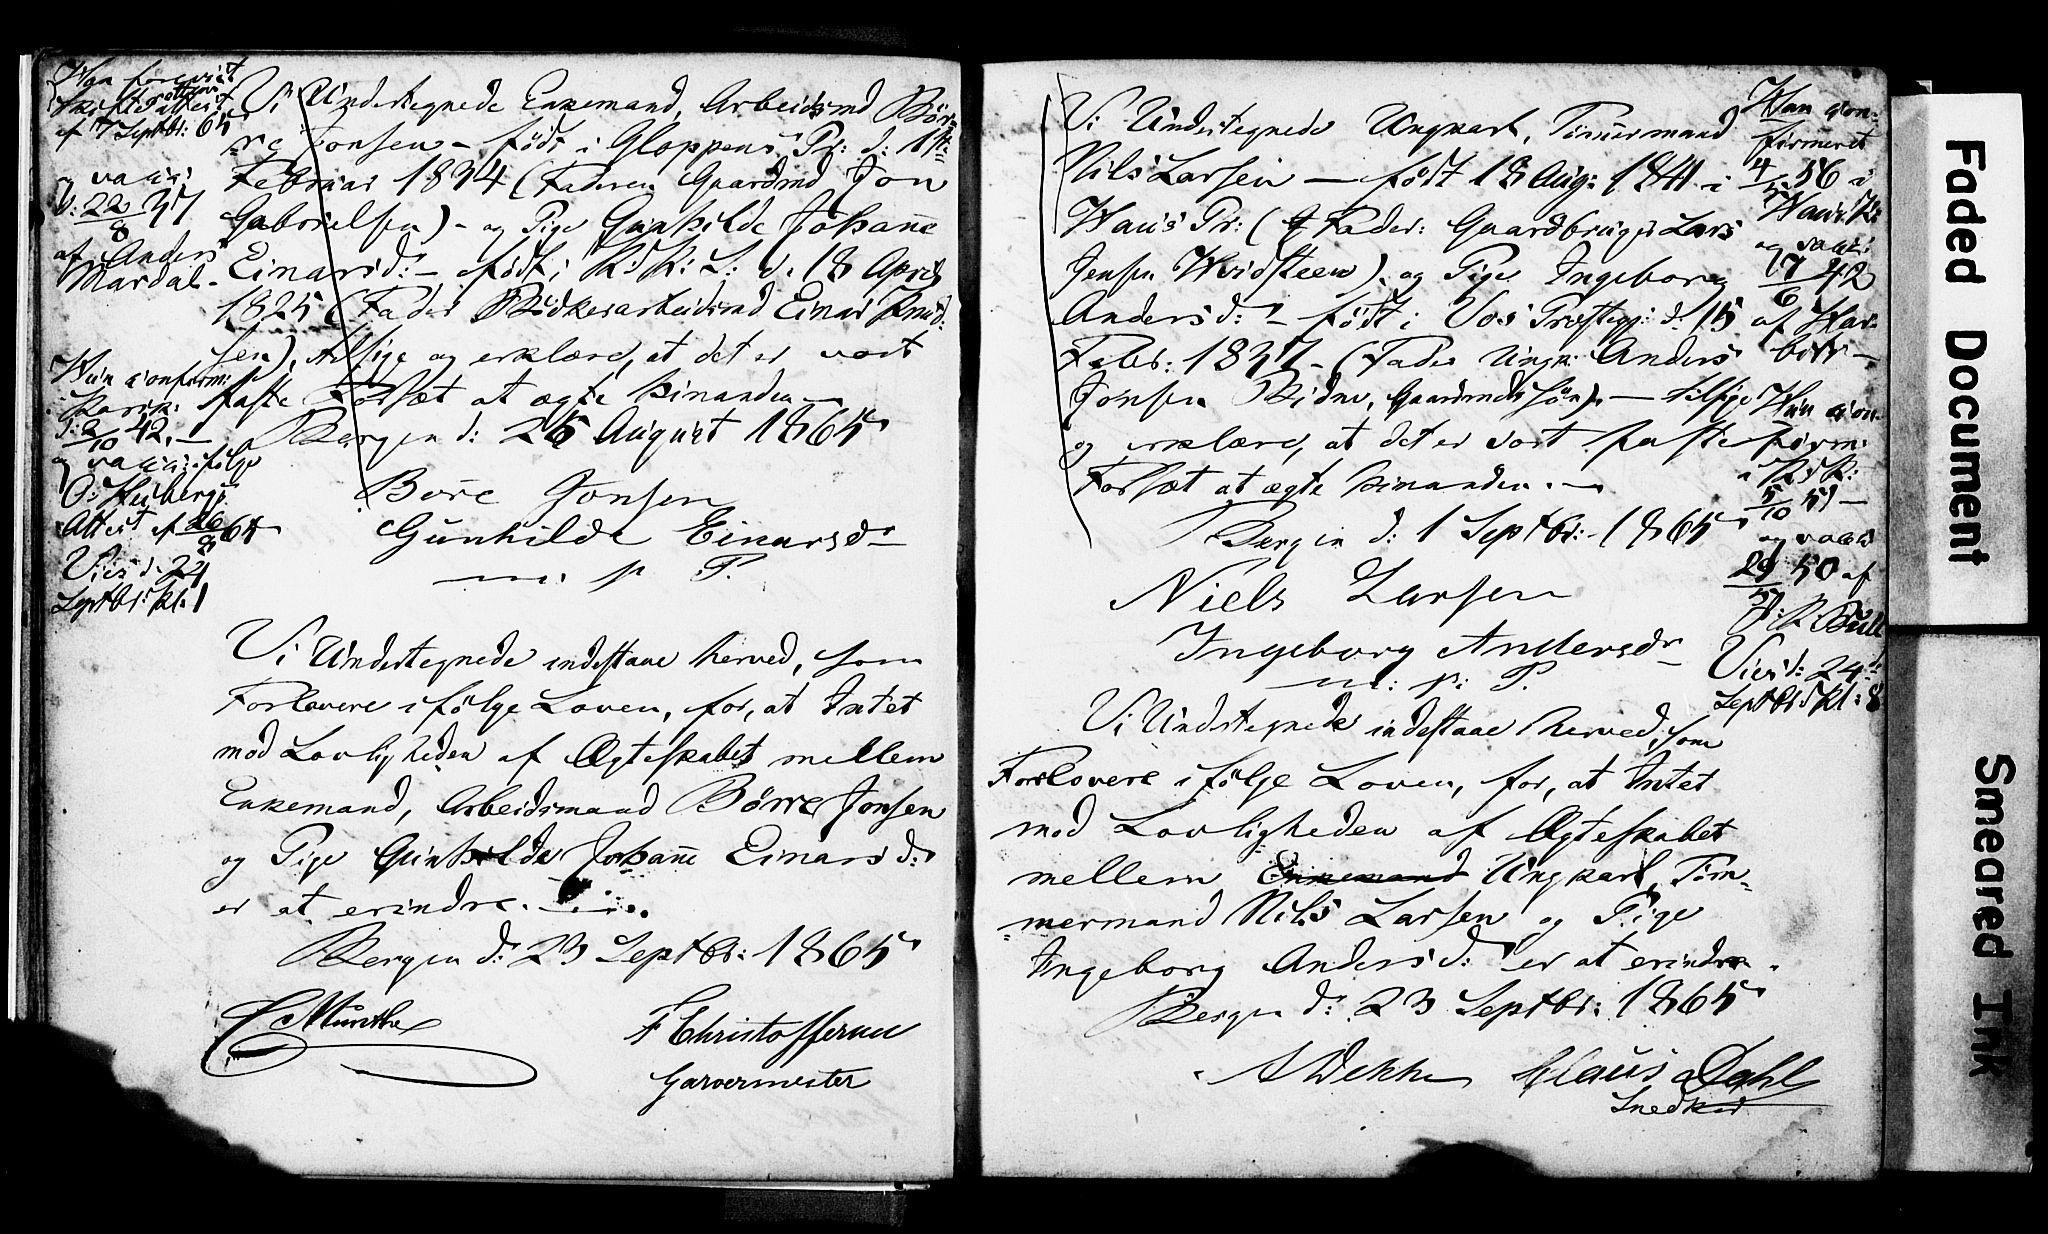 Han forevist
Skifteattest
af 7 Septbr: 65
og vacc:
d: 22/8 37
af Anders
Mardal.
Hun confirm:
Korsk:
d: 2/10 42.—
og vacc: ifølge
O: Heibergs
Attest af 26/8 65
Vies d. 24
Septbr: Kl. 1
Vi Undertegnede Enkemand, Arbeidsmd Bør-
re Jonsen – født i Gloppens Pr: d: 1
Februar 1834 (Faderen Gaardmd Jon
Gabrielsen) – og Pige Gunhilde Johanne
Einarsd: – født i d. 18 April
1825 (Fader Bødkerarbeidsmd Einar Knud-
sen), tilsige og erklære, at det er vort
faste Forsæt at ægte hinanden. —
Bergen d: 25 August 1865
Børe Jonsen
Gunhilde Einarsdr
m. p. P.
Vi Undertegnede indestaae herved, som
Forlovere ifølge Loven, for, at Intet
mod Lovligheden af Ægteskabet mellem
Enkemand, Arbeidsmand Børre Jonsen
og Pige Gunhilde Johanne Einarsd:
er at erindre.
Bergen d: 23 Septbr: 1865
C Munthe
F Christoffersen
Garvermester
Vi Undertegnede Ungkarl, Tømmermand
Nils Larsen — født 18 Aug: 1841 i
Haus Pr: (Fader: Gaardbruger Lars
Jensen Hvidsteen) og Pige Ingeborg
Andersd: – født i Vos Præstegj: d: 15
Febr: 1837 – (Fader Ungk: Anders
Jonsen Gaardmdssøn) — tilsige
og erklære, at det er vort faste
Forsæt at ægte hinanden. —
Bergen d: 1 Septbr: 1865
Niels Larsen
Ingeborg Andersdr
m: p: P.
Vi Undertegnede indestaae herved, som
Forlovere ifølge Loven, for, at Intet
mod Lovligheden af Ægteskabet
mellem Enkemand Ungkarl, Tøm-
mermand Nils Larsen og Pige
Ingeborg Andersd: er at erindre.
Bergen d: 23 Septbr: 1865
Claus Dahl
Snedker
Han con-
firmeret
4/5 56 i
Haus K:
og vacc:
17/6 42
af Har-
boe —
Hun con-
firm:
i
5/10 51 —
og vacc:
29/5 50 af
Bull
Vies d: 24
Septbr Kl: 8
Faded Document
Smeared Ink